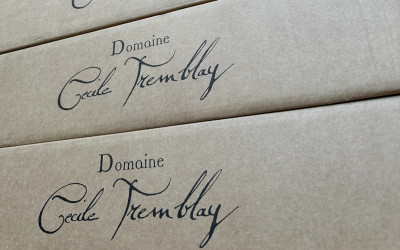 Domaine
Cecile Tremblay
Domaine
Cecile Tremblay